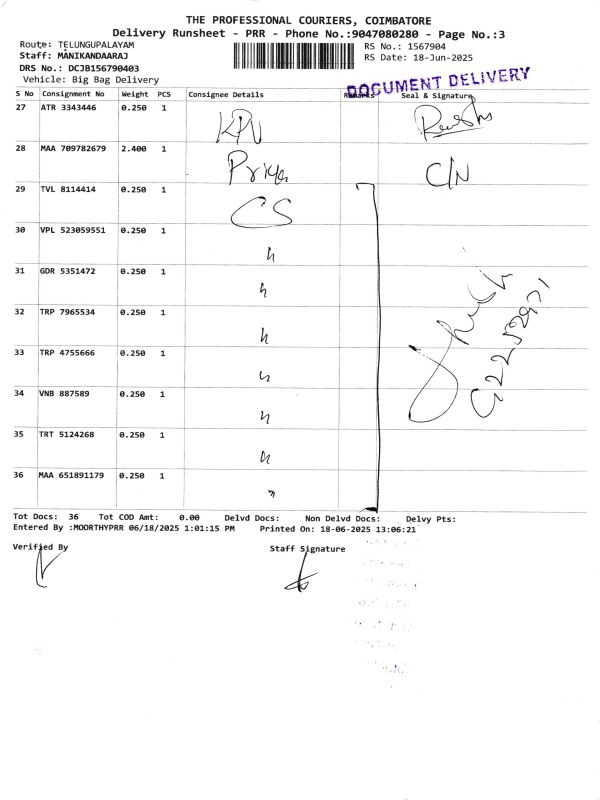 THE PROFESSIONAL COURIERS, COIMBATORE
Delivery Runsheet - PRR - Phone No.:9047080280 - Page No.:3
Route: TELUNGUPALAYAM
RS No.: 1567904
Staff: MANIKANDAARAJ
RS Date: 18-Jun-2025
DRS No.: DCJB156790403
Vehicle: Big Bag Delivery
DOCUMENT DELIVERY
S No Consignment No Weight PCS Consignee Details Remarks Seal & Signature
27 ATR 3343446 0.250 1 KPN
28 MAA 709782679 2.400 1 Priya C/N
29 TVL 8114414 0.250 1 CS
30 VPL 523059551 0.250 1 "
31 GDR 5351472 0.250 1 "
32 TRP 7965534 0.250 1 "
33 TRP 4755666 0.250 1 "
34 VNB 887589 0.250 1 "
35 TRT 5124268 0.250 1 "
36 MAA 651891179 0.250 1 "
Tot Docs: 36 Tot COD Amt: 0.00 Delvd Docs: Non Delvd Docs: Delvy Pts:
Entered By :MOORTHYPRR 06/18/2025 1:01:15 PM Printed On: 18-06-2025 13:06:21
Verified By Staff Signature